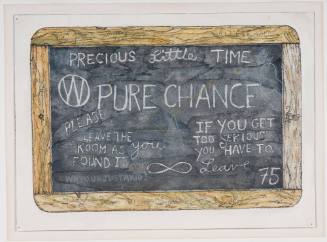 PRECIOUS Little TIME
W PURE CHANCE
PLEASE
LEAVE THE
ROOM AS you
FOUND IT
IF YOU GET
TOO SERIOUS
YOU HAVE TO
Leave
75